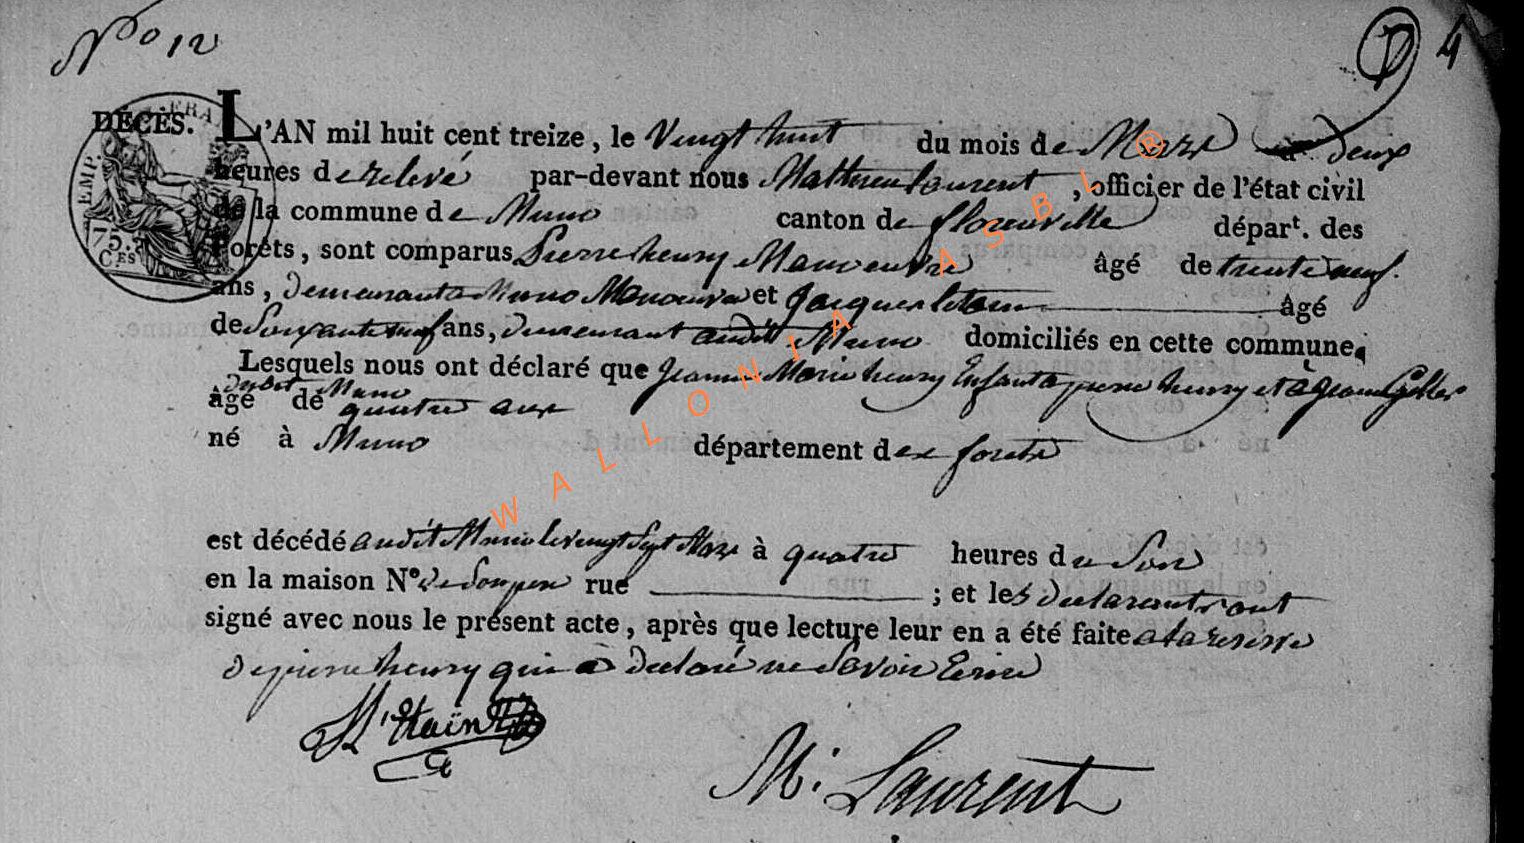 N° 12
4
DÉCÈS. L'AN mil huit cent treize, le vingt huit du mois de Mars à deux
heures de relevé par-devant nous Mathieu Laurent, officier de l'état civil
de la commune de Muno canton de florenville départ. des
Forêts, sont comparus Pierre henry Manoeuvre âgé de trente neuf
ans, demeurant a Muno Manoeuvre et Jacques âgé
de Soixante neuf ans, demeurant audit Muno domiciliés en cette commune,
Lesquels nous ont déclaré que Jeanne Marie henry Enfant a pierre henry et à Jeanne
dudit Muno
âgé de quatre ans
né à Muno département des forets
est décédé audit Muno le vingt Sept Mars à quatre heures du Soir
en la maison N° de Son pere rue ; et les declarants ont
signé avec nous le présent acte, après que lecture leur en a été faite a la reserve
de pierre henry qui a declaré ne Savoir Ecrire
M. Laurent
EMP. FRA
75.
C.ES
WALLONIA ASBL ®